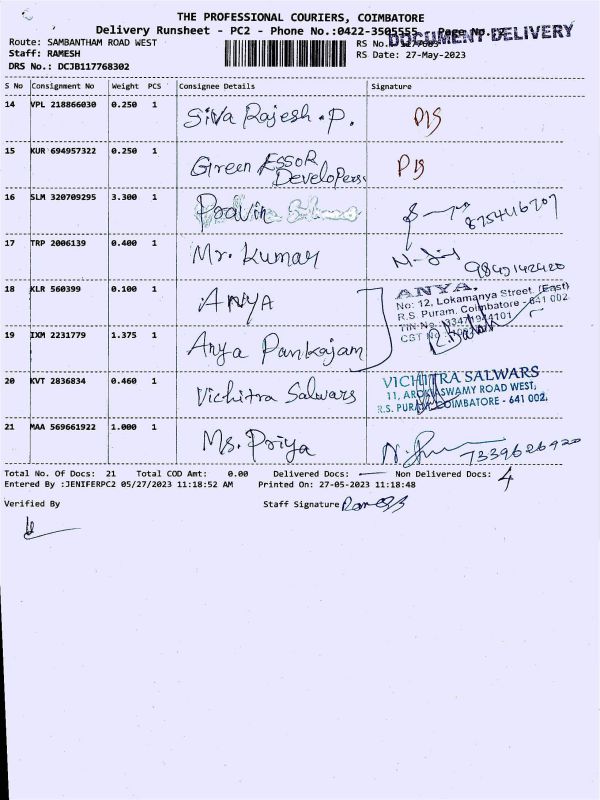 THE PROFESSIONAL COURIERS, COIMBATORE
Delivery Runsheet - PC2 - Phone No.:0422-3505555 Page No.
DOCUMENT DELIVERY
Route: SAMBANTHAM ROAD WEST RS No.
Staff: RAMESH RS Date: 27-May-2023
DRS No.: DCJB117768302
S No Consignment No Weight PCS Consignee Details Signature
14 VPL 218866030 0.250 1 Siva Rajesh . P. DIS
15 KUR 694957322 0.250 1 Green Essor Developers DIS
16 SLM 320709295 3.300 1 Pravin 8754416707
17 TRP 2006139 0.400 1 Mr. Kumar
18 KLR 560399 0.100 1 ANYA
ANYA.
No: 12, Lokamanya Street (East)
R.S. Puram. Coimbatore - 641 002.
TIN No
CST No
19 IXM 2231779 1.375 1 Anya Pankajam
20 KVT 2836834 0.460 1 Vichitra Salwars
VICHITRA SALWARS
11, AROKIASWAMY ROAD WEST,
R.S. PURAM, COIMBATORE - 641 002.
21 MAA 569661922 1.000 1 Ms. Priya 7339626920
Total No. Of Docs: 21 Total COD Amt: 0.00 Delivered Docs: Non Delivered Docs: 4
Entered By :JENIFERPC2 05/27/2023 11:18:52 AM Printed On: 27-05-2023 11:18:48
Verified By Staff Signature Ramesh